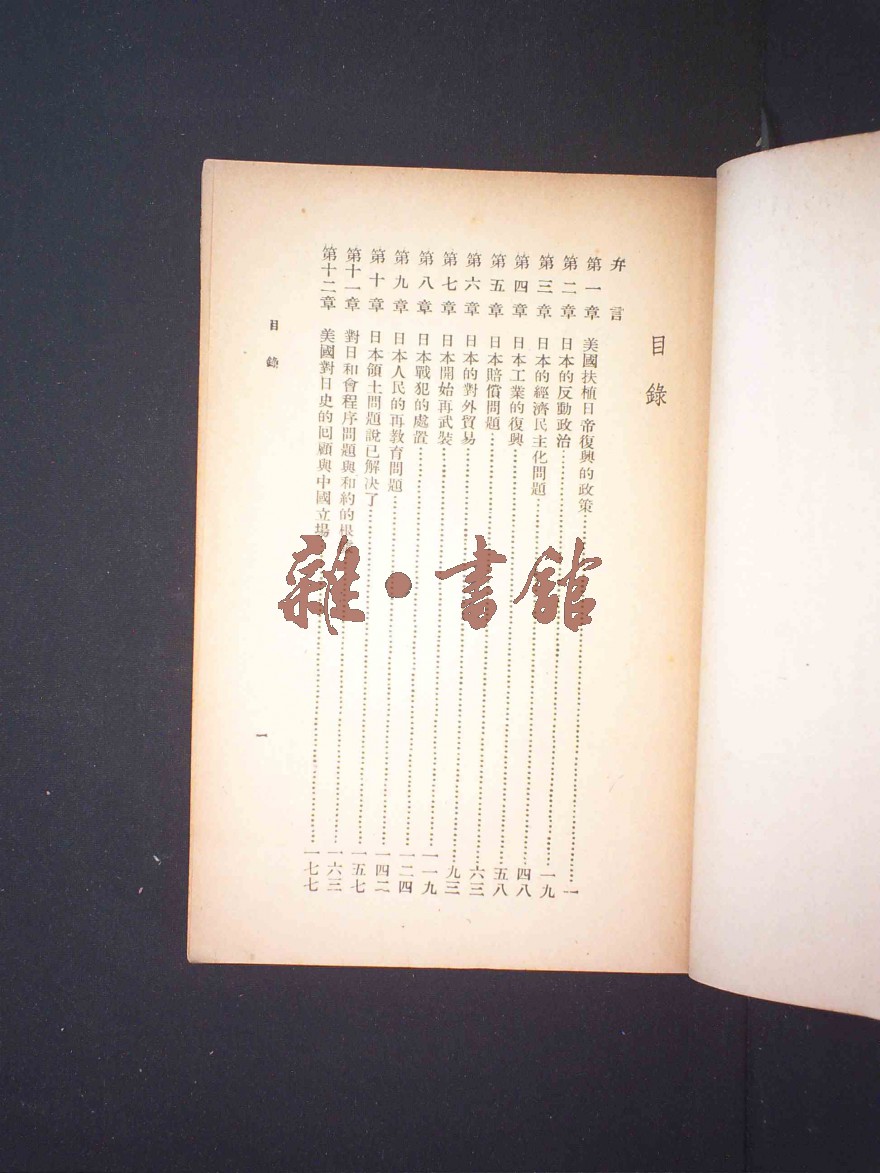 目錄
弁言
第一章 美國扶植日帝復興的政策……一
第二章 日本的反動政治……一九
第三章 日本的經濟民主化問題……四八
第四章 日本工業的復興……五八
第五章 日本賠償問題……六三
第六章 日本的對外貿易……九三
第七章 日本開始再武裝……一一九
第八章 日本戰犯的處置……一二四
第九章 日本人民的再教育問題……一四二
第十章 日本領土問題說已解決了……一五七
第十一章 對日和會程序問題與和約的根……一六三
第十二章 美國對日史的回顧與中國立場……一七七
目錄
一
雜·書館